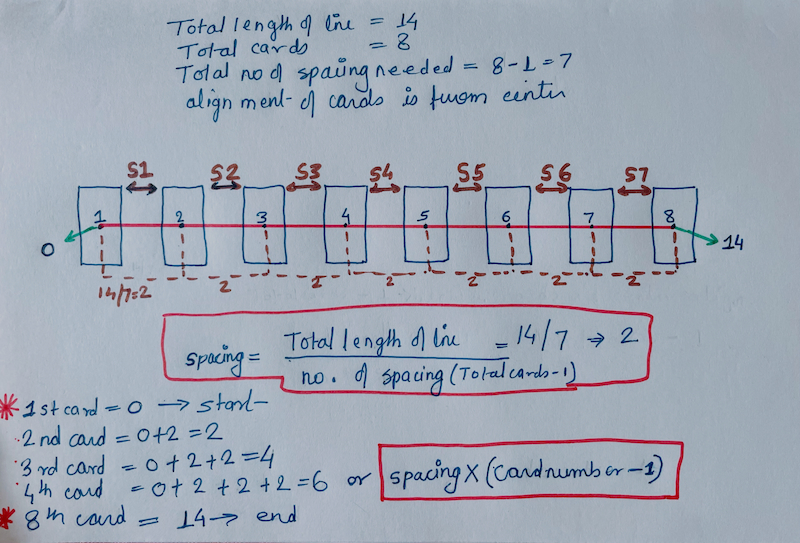 Total length of line = 14
Total cards = 8
Total no of spacing needed = 8-1=7
alignment of cards is from center
S1 S2 S3 S4 S5 S6 S7
1 2 3 4 5 6 7 8
0 14
14/7=2 2 2 2 2 2 2
spacing = Total length of line = 14/7 ⇒ 2
no. of spacing (Total cards-1)
* 1st card = 0 → start
2nd card = 0+2 = 2
3rd card = 0+2+2=4
4th card = 0+2+2+2=6 or spacing X (Card number -1)
* 8th card = 14 → end